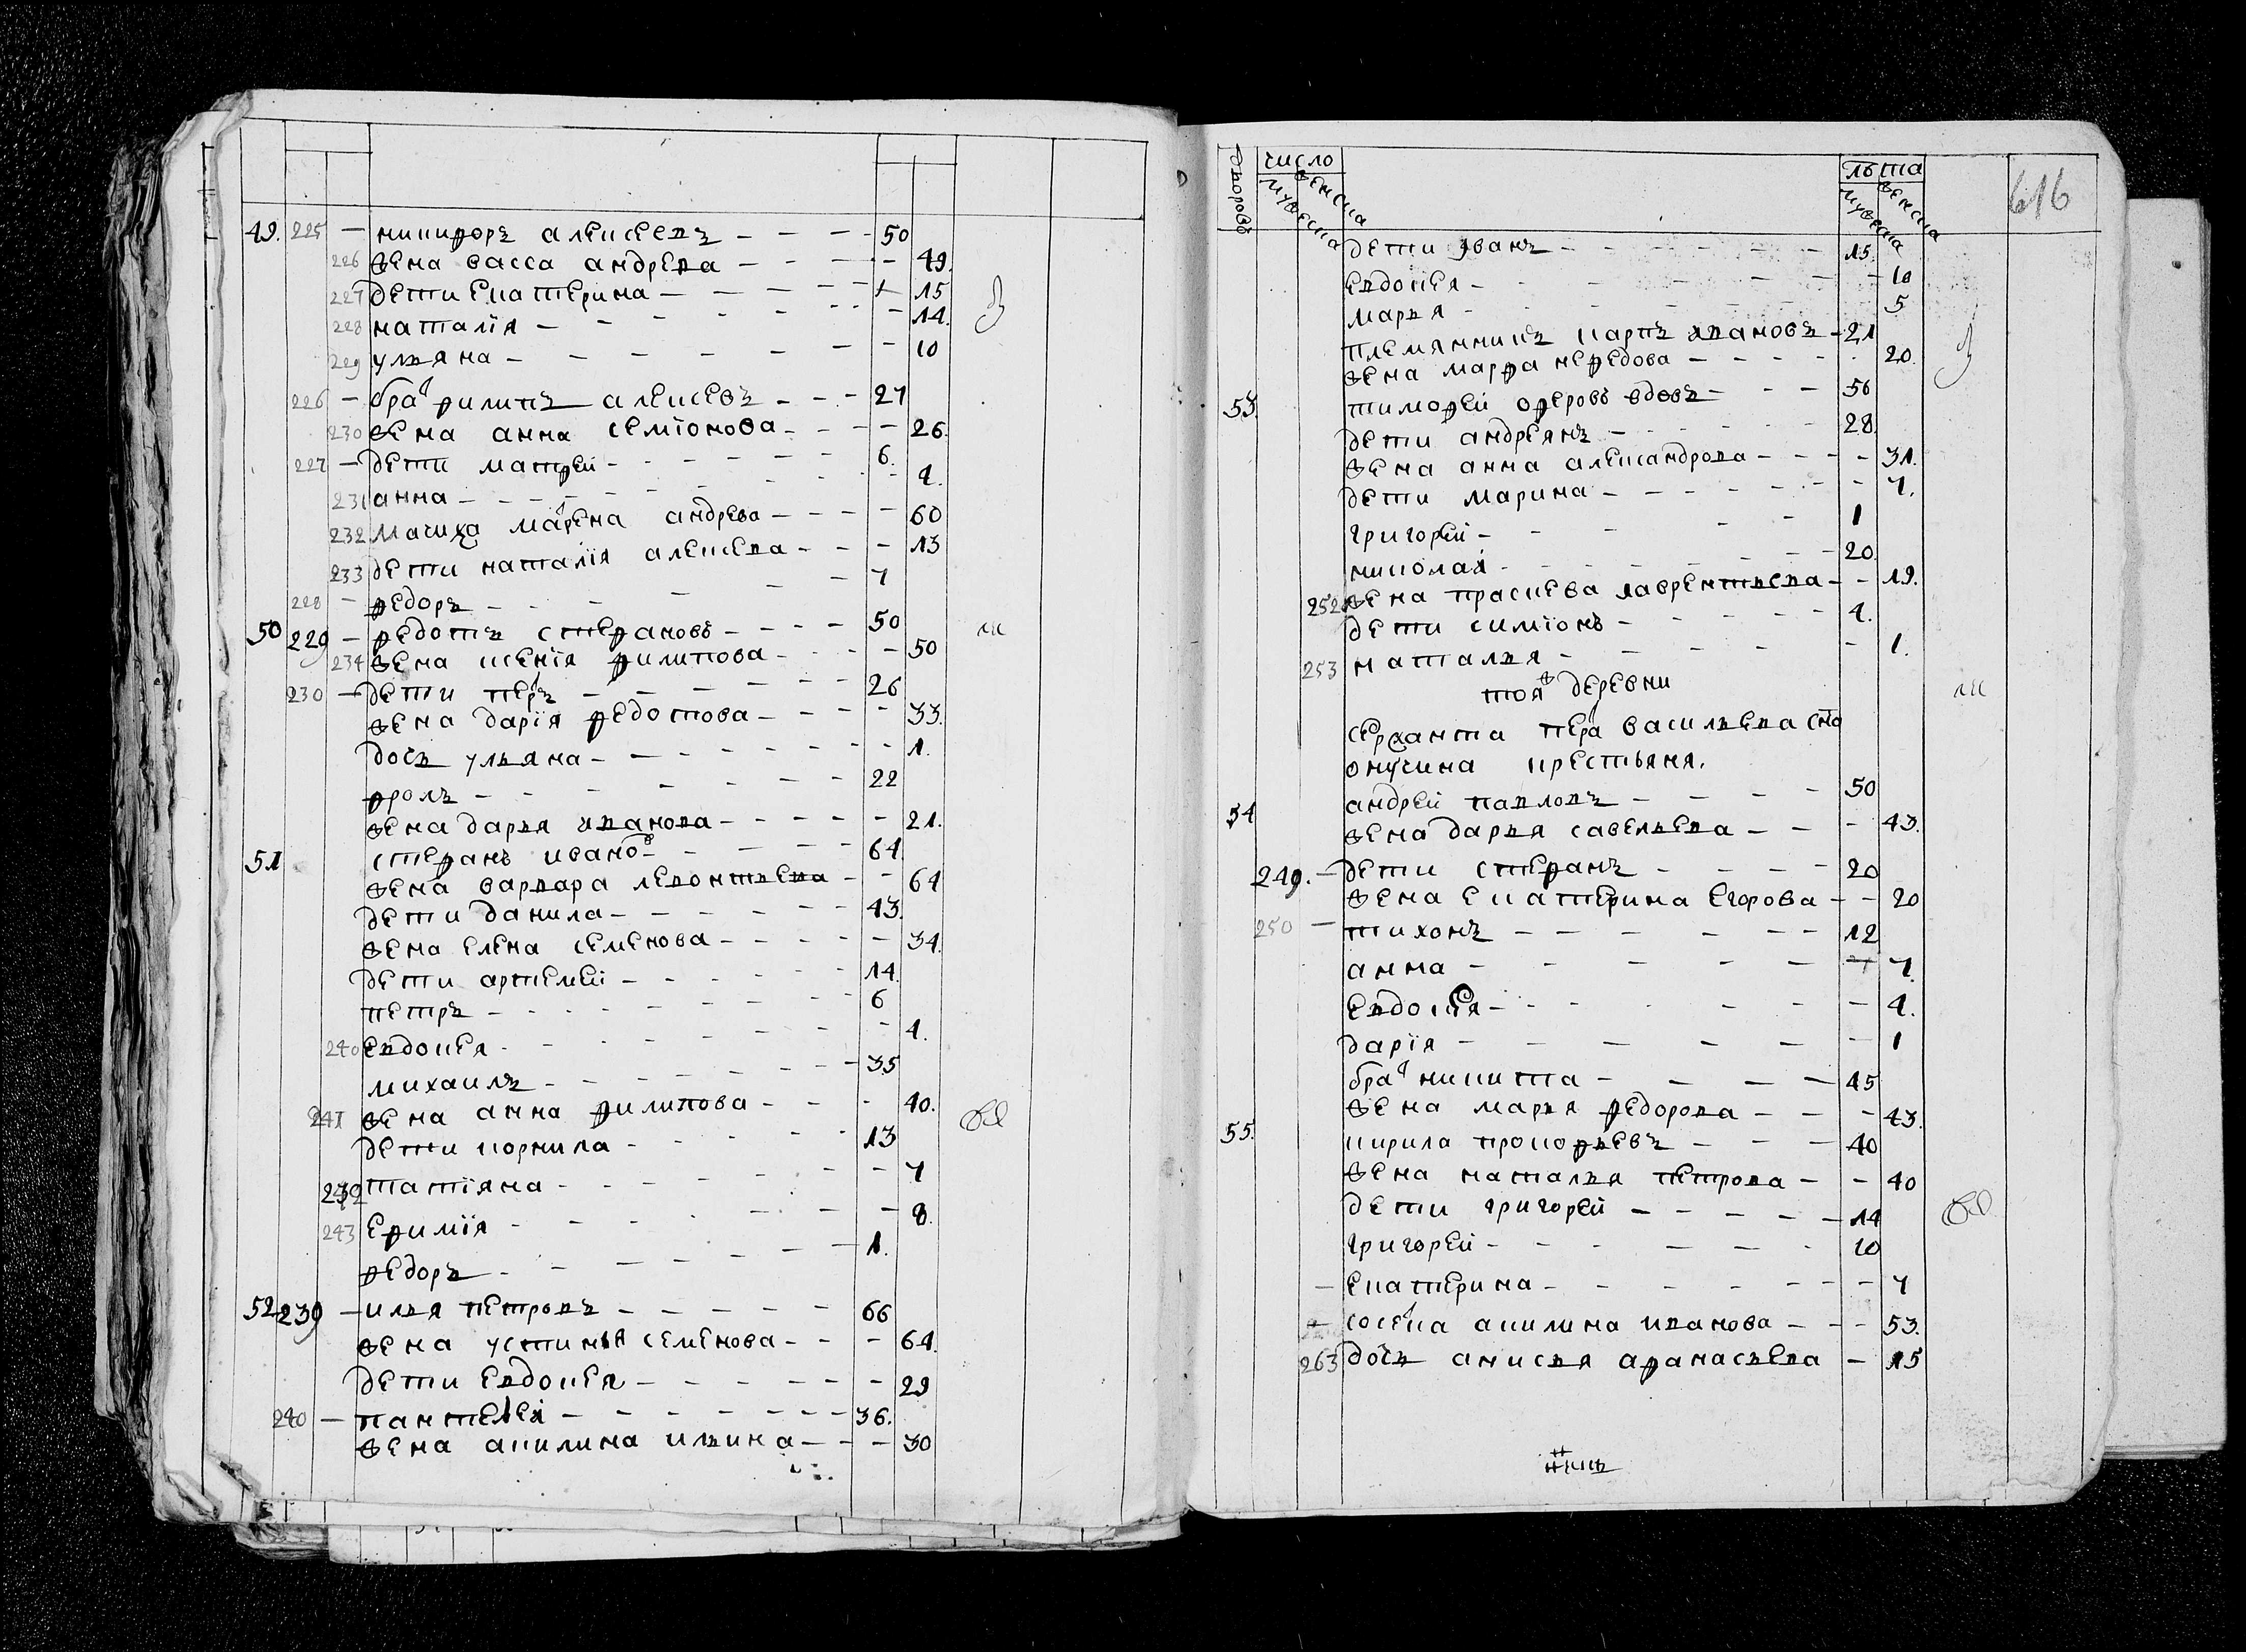 49. 225 — никифоръ алексеевъ — 50
226 жена васса андреева — 49.
227 дети екатерина — 15
228 наталїя — 14.
229 ульяна — 10
226 — бра т филипъ алексевъ — 27
230 жена анна семїонова — 26.
227 — дети матфей — 6.
231 анна — 4.
232 мачиха марена андрева — 60
233 дети наталїя алексева — 13
228 — федоръ — 7
50 229 — федотъ стефановъ — 50
234 жена ксенїя филипова — 50
230 — дети петръ — 26
жена дарїя федотова — 33.
дочь ульяна — 1.
фролъ — 22
жена дарья иванова — 21.
51 стефанъ ивановъ — 64
жена варвара левонтьева — 64
дети данила — 43.
жена елена семенова — 34.
дети артемей — 14.
петръ — 6
240 евдокея — 4.
михаилъ — 35
241 жена анна филипова — 40.
дети корнила — 13
242 татїяна — 7
243 ефимїя — 8.
федоръ — 1.
52 239 — илья петровъ — 66
жена устинья семенова — 64.
дети евдокея — 29
240 — пантелей — 36.
жена акилина ильина — 30
дворовъ число мужеска женска лѣта мужеска женска 616
дети иванъ — 15
евдокея — 10
марья — 5
племянникъ карпъ ивановъ — 21
жена марфа нефедова — 20.
53. тимофей оферовъ вдовъ — 56
дети андреянъ — 28.
жена анна александрова — 31.
дети марина — 7.
григорей — 1
николай — 20.
252 жена прасковья лаврентьева — 19.
дети симїонъ — 4.
253 наталья — 1.
тояж деревни
сержанта петра васильева сна
онучина крестьяня.
54 андрей павловъ — 50
жена дарья савельева — 43.
249. — дети стефанъ — 20
жена екатерина егорова — 20
250 — тихонъ — 12
анна — 7.
евдокея — 4.
дарїя — 1
брат никита — 45
жена марья федорова — 43.
55. кирила прокофьевъ — 40
жена наталья петрова — 40
дети григорей — 14
григорей — 10
— екатерина — 7
сосетка акилина иванова — 53.
263 дочь анисья афанасьева — 15